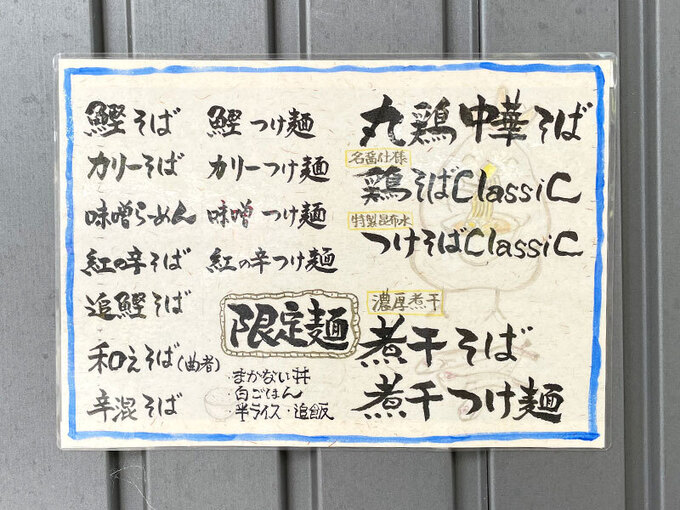 丸鶏中華そば
名畨仕様
鶏そばClassiC
特製昆布水
つけそばClassiC
濃厚煮干
煮干そば
煮干つけ麺
鰹そば
鰹つけ麺
カリーそば
カリーつけ麺
味噌らーめん
味噌つけ麺
紅の辛そば
紅の辛つけ麺
追鰹そば
和えそば(曲者)
辛混そば
限定麺
・まかない丼
・白ごはん
・半ライス・追飯